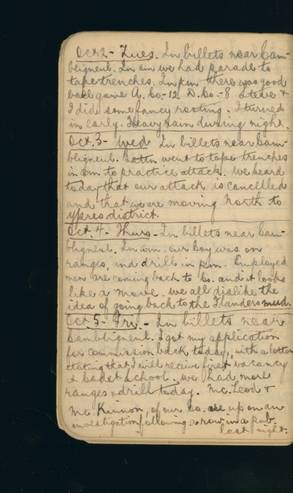 Oct. 2 - Tues. In billets near Cam-
bligneul. In am we had parade to
tape trenches. In pm there was good
ball game A. Co. - 12 D. Co. - 8
I did some fancy rooting. I turned
in early. Heavy rain during night.
Oct. 3 - Wed In billets near Cam-
bligneul. Battn went to tape trenches
in am to practice attack. We heard
today that our attack is cancelled
and that we are moving North to
Ypres district.
Oct. 4. - Thurs. - In billets near Cam-
bligneul. In am. our boy was on
ranges, and drill in p.m. Employed
men are coming back to Co. and it looks
like a move. we all dislike the
idea of going back to the Flanders mud.
Oct 5 - Fri. - In billets near
Cambligneul. I got my application
for commission back today, with a letter
stating that I will receive first vacancy
at Cadet School. we had more
ranges & drill today. McLeod &
McKinnon, of our Co. are up on an
investigation, following a row in a pub.
last night.